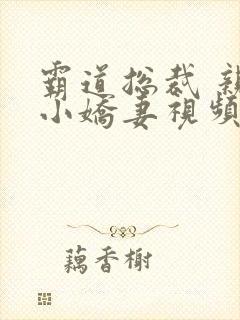 霸道总裁 親
小嬌妻視頻
藕香榭